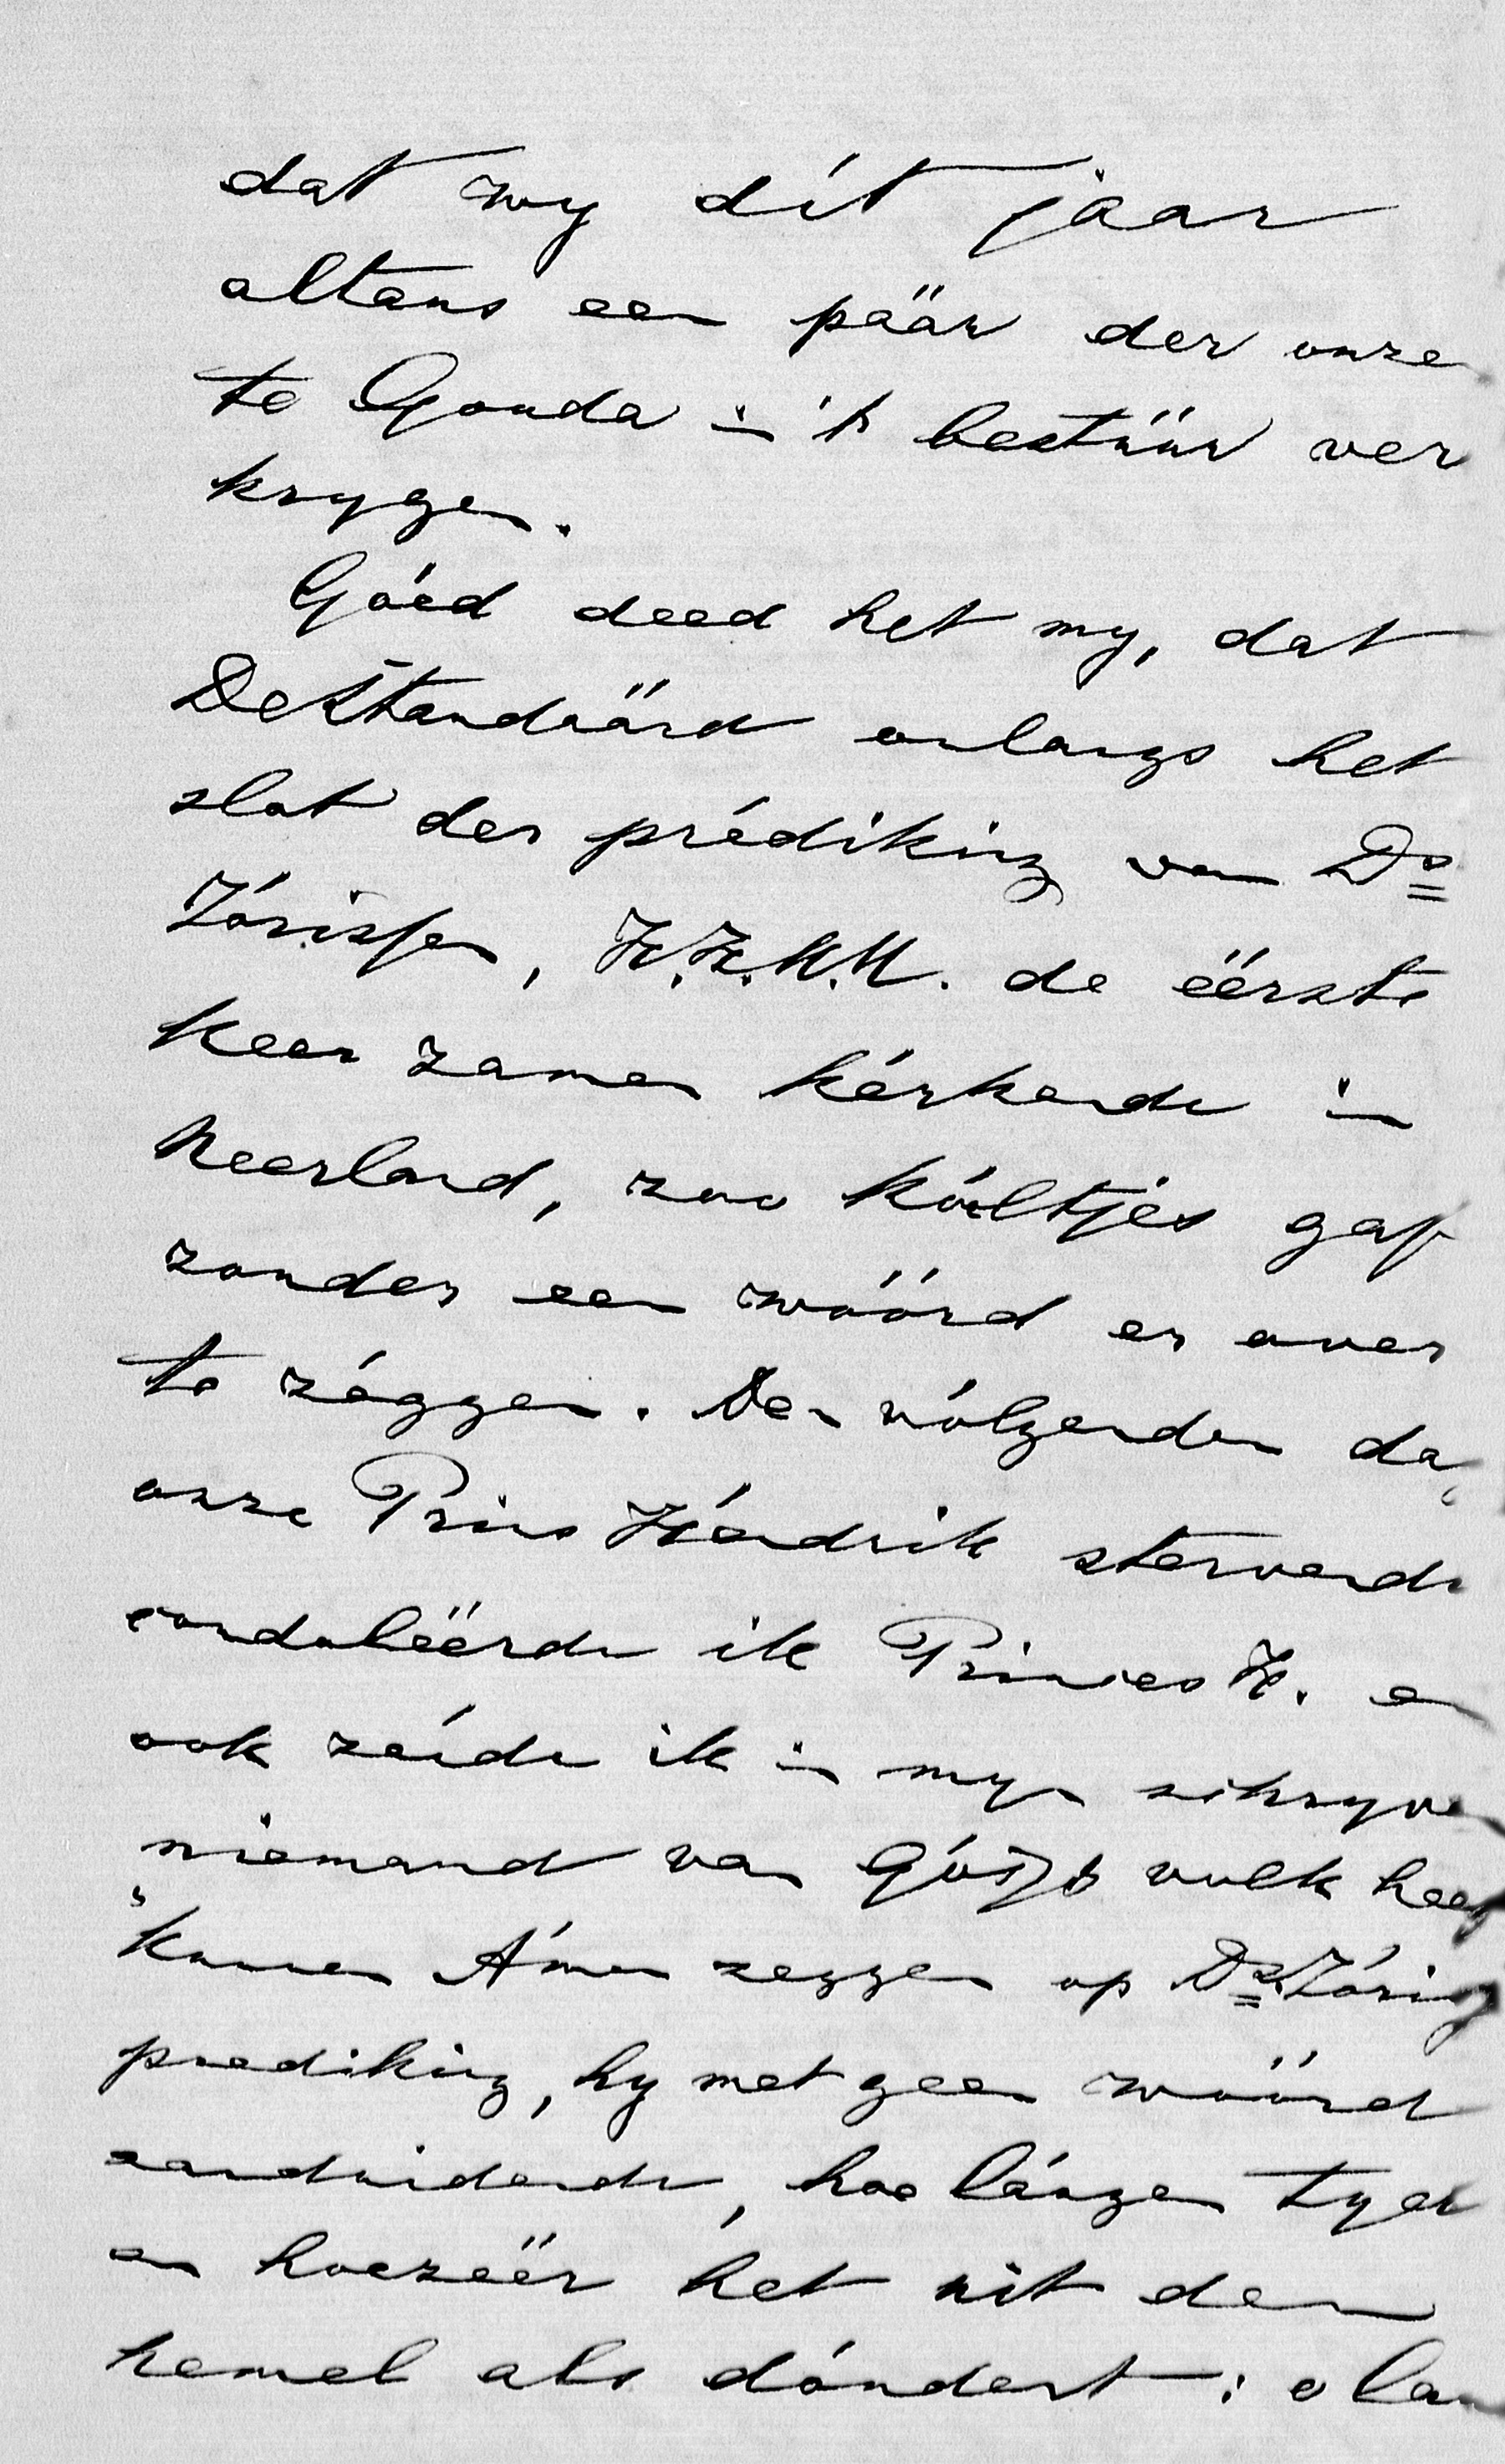 dat wy dít jáar
altans een päär der onze
te Gouda in 't bestüür ver
krygen.
Góed deed het my, dat
De Standäärd onlangs het
slot der prédiking van Ds
Jórissen, H.H.M.M. de ëërste
keer zamen kérkende in
Neerland, zoo kóeltjes gaf
zonder een wóórd er over
te zéggen. Den vólgenden da
onze Prins Héndrik stervende
condolëërde ik Prinses H. en
ook zéide ik in myn schryven
niemand van Gód's volk heef
"kunnen Ámen zeggen op Ds. Jóris
prediking, hy met geen wóórd
aanduidende, hoe lángen tyd
en hoezëër het uit den
hemel als dóndert: o lan